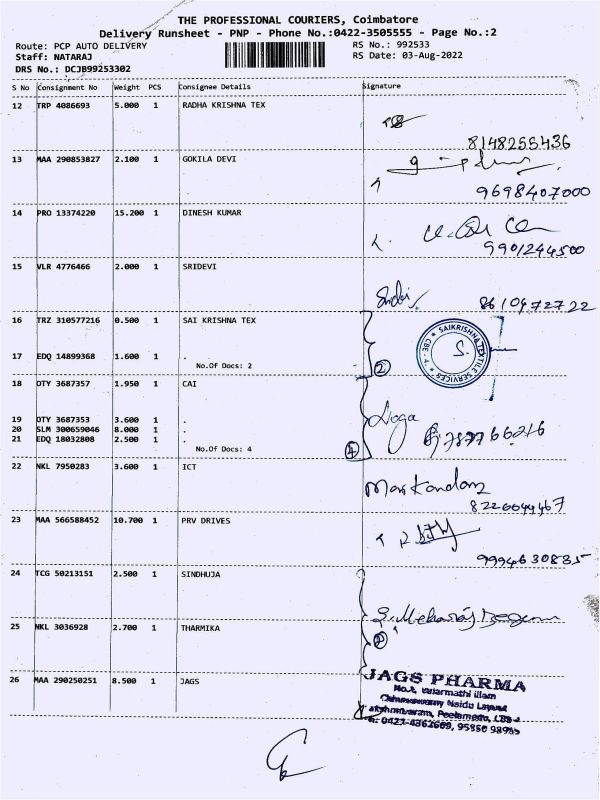 THE PROFESSIONAL COURIERS, Coimbatore
Delivery Runsheet - PNP - Phone No.:0422-3505555 - Page No.:2
Route: PCP AUTO DELIVERY
RS No.: 992533
Staff: NATARAJ
RS Date: 03-Aug-2022
DRS No.: DCJB99253302
S No Consignment No Weight PCS Consignee Details Signature
12 TRP 4086693 5.000 1 RADHA KRISHNA TEX
8148255436
13 MAA 290853827 2.100 1 GOKILA DEVI
9698407000
14 PRO 13374220 15.200 1 DINESH KUMAR
9901244500
15 VLR 4776466 2.000 1 SRIDEVI
8610972722
16 TRZ 310577216 0.500 1 SAI KRISHNA TEX
SAIKRISHNA TEXTILE SERVICES
CBE - 4
17 EDQ 14899368 1.600 1 .
No.Of Docs: 2
2
18 OTY 3687357 1.950 1 CAI
19 OTY 3687353 3.600 1 .
Loga
20 SLM 300659046 8.000 1 .
21 EDQ 18032808 2.500 1 .
No.Of Docs: 4
4
22 NKL 7950283 3.600 1 ICT
8226044467
23 MAA 566588452 10.700 1 PRV DRIVES
9994630835
24 TCG 50213151 2.500 1 SINDHUJA
S. Meharaj Begam
25 NKL 3036928 2.700 1 THARMIKA
26 MAA 290250251 8.500 1 JAGS
JAGS PHARMA
Naidu Layout
Peelamedu,